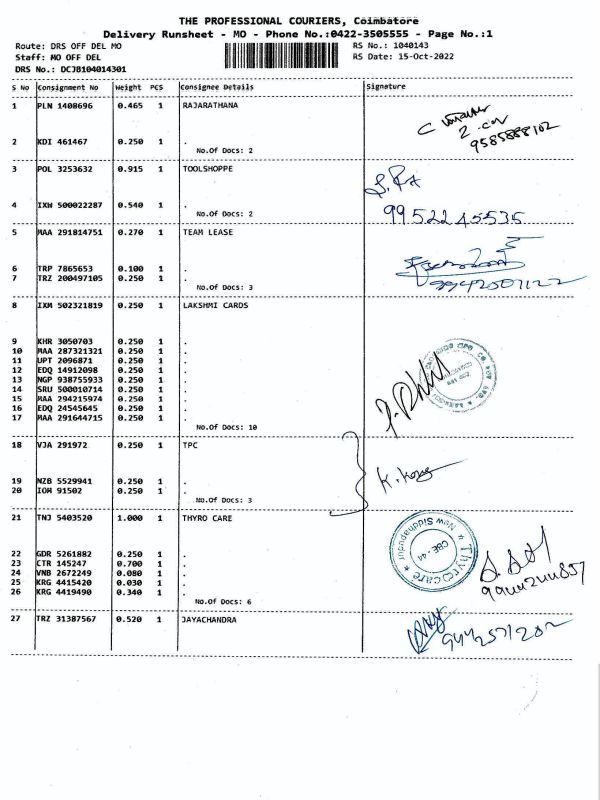 THE PROFESSIONAL COURIERS, Coimbatore
Delivery Runsheet - MO - Phone No.:0422-3505555 - Page No.:1
Route: DRS OFF DEL MO RS No.: 1040143
Staff: MO OFF DEL RS Date: 15-Oct-2022
DRS No.: DCJB104014301
S No Consignment No Weight PCS Consignee Details Signature
1 PLN 1408696 0.465 1 RAJARATHANA
2 KDI 461467 0.250 1 .
9585888102
No.Of Docs: 2
3 POL 3253632 0.915 1 TOOLSHOPPE
4 IXW 500022287 0.540 1 .
No.Of Docs: 2 9952245535
5 MAA 291814751 0.270 1 TEAM LEASE
6 TRP 7865653 0.100 1 .
7 TRZ 200497105 0.250 1 .
No.Of Docs: 3
8 IXM 502321819 0.250 1 LAKSHMI CARDS
9 KHR 3050703 0.250 1 .
10 MAA 287321321 0.250 1 .
11 UPT 2096871 0.250 1 .
12 EDQ 14912098 0.250 1 .
13 NGP 938755933 0.250 1 .
14 SRU 500010714 0.250 1 .
15 MAA 294215974 0.250 1 .
16 EDQ 24545645 0.250 1 .
17 MAA 291644715 0.250 1 .
No.Of Docs: 10
18 VJA 291972 0.250 1 TPC
19 NZB 5529941 0.250 1 .
20 IOM 91502 0.250 1 .
No.Of Docs: 3
21 TNJ 5403520 1.000 1 THYRO CARE
Thyrocare
New Siddhapudur
CBE - 44
22 GDR 5261882 0.250 1 .
23 CTR 145247 0.700 1 .
24 VNB 2672249 0.080 1 .
25 KRG 4415420 0.030 1 .
26 KRG 4419490 0.340 1 .
No.Of Docs: 6
27 TRZ 31387567 0.520 1 JAYACHANDRA